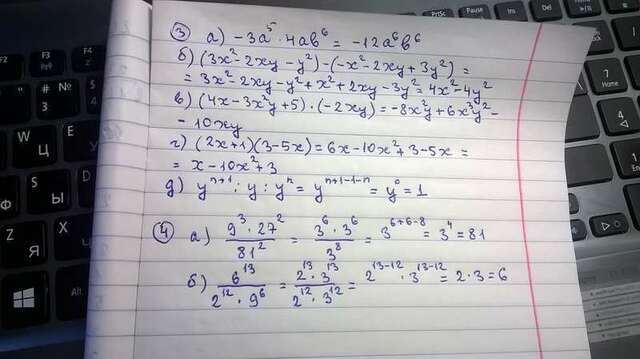 ③ а) -3a⁵ · 4ab⁶ = -12a⁶b⁶
б) (3x²-2xy-y²)-(-x²-2xy+3y²) =
= 3x²-2xy-y²+x²+2xy-3y² = 4x²-4y²
в) (4x-3x²y+5)·(-2xy) = -8x²y+6x³y²-
- 10xy
г) (2x+1)(3-5x) = 6x-10x²+3-5x =
= x-10x²+3
д) yⁿ⁺¹ : y : yⁿ = yⁿ⁺¹⁻¹⁻ⁿ = y⁰ = 1
④ а) (9³ · 27²)/(81²) = (3⁶ · 3⁶)/(3⁸) = 3⁶⁺⁶⁻⁸ = 3⁴ = 81
б) (6¹³)/(2¹² · 9⁶) = (2¹³ · 3¹³)/(2¹² · 3¹²) = 2¹³⁻¹² · 3¹³⁻¹² = 2 · 3 = 6